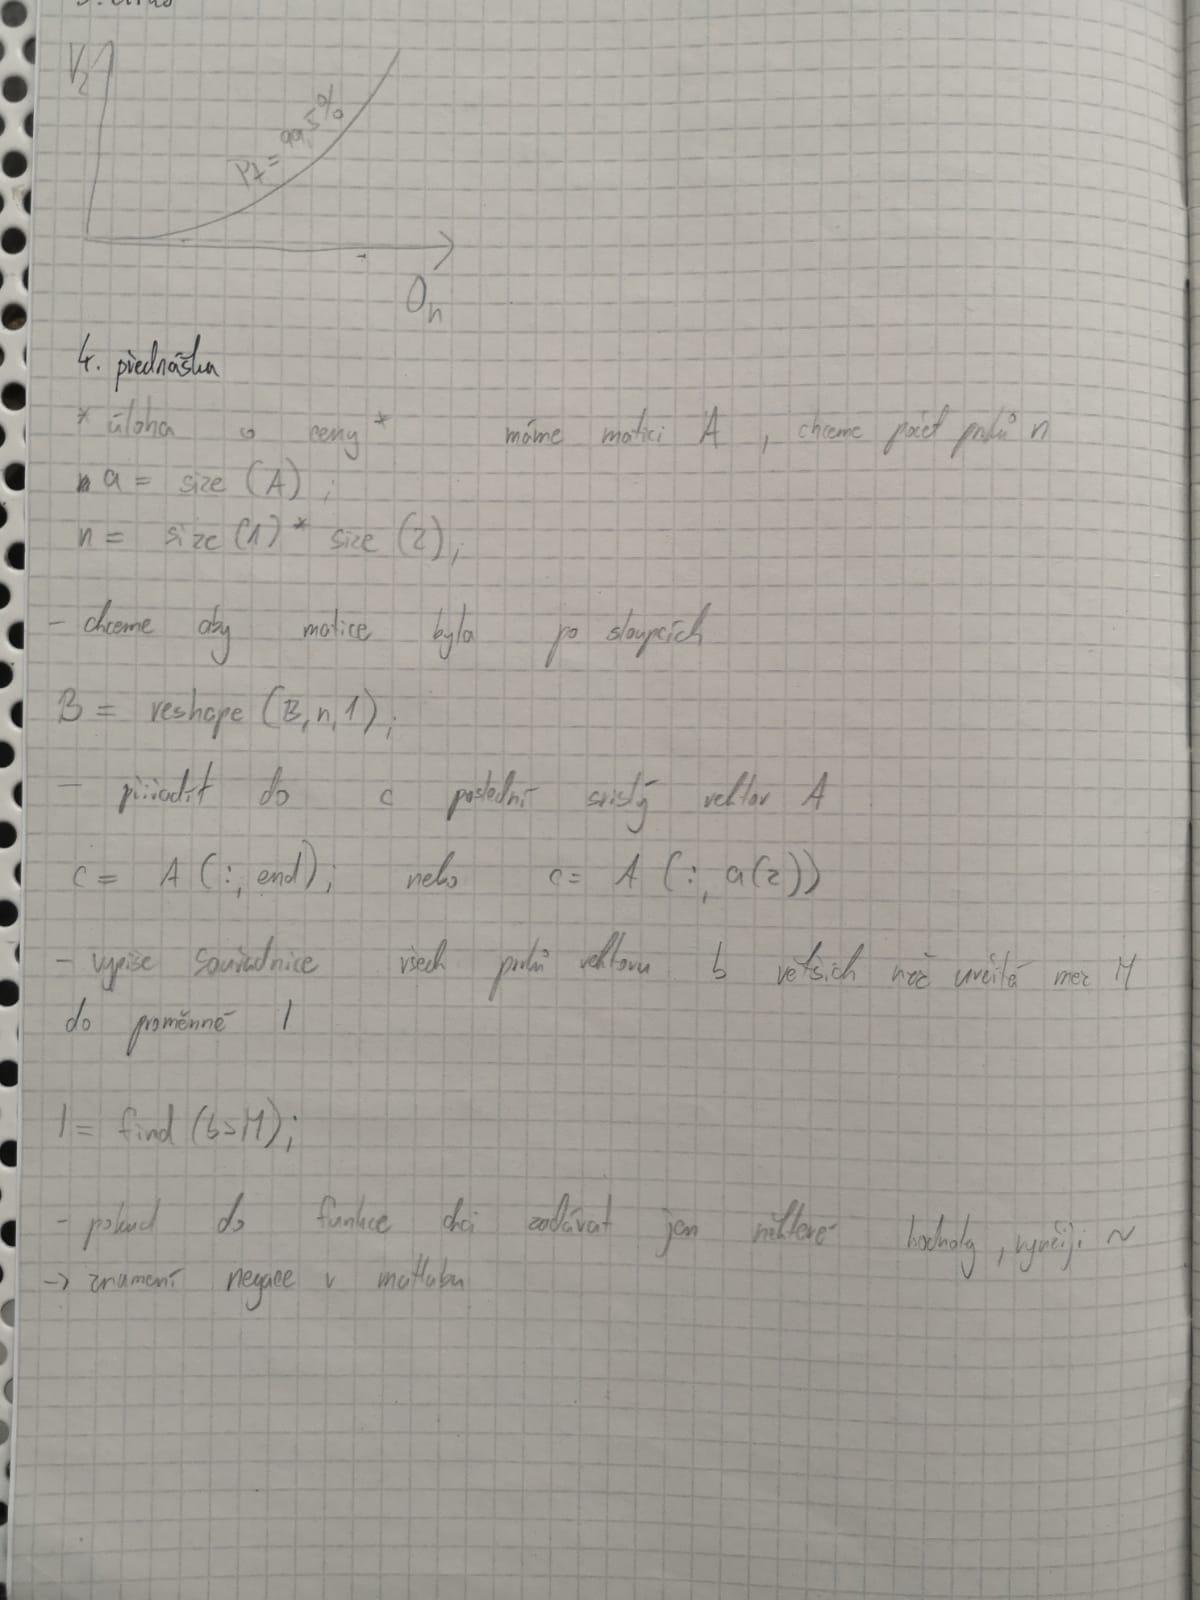 V₂
Pt = 99,5%
On
4. přednáška
* úloha o ceny * máme matici A, chceme počet prvků n
a = size (A);
n = size (1) * size (2);
- chceme aby matice byla po sloupcích
B = reshape (B, n, 1);
- přiřadit do c poslední svislý vektor A
c = A (:, end); nebo c = A (:, a(2))
- vypíše souřadnice všech prvků vektoru b větších než určitá mez M
do proměnné I
I = find (b>M);
- pokud do funkce chci zadávat jen některé hodnoty, ~
-> znamení negace v matlabu